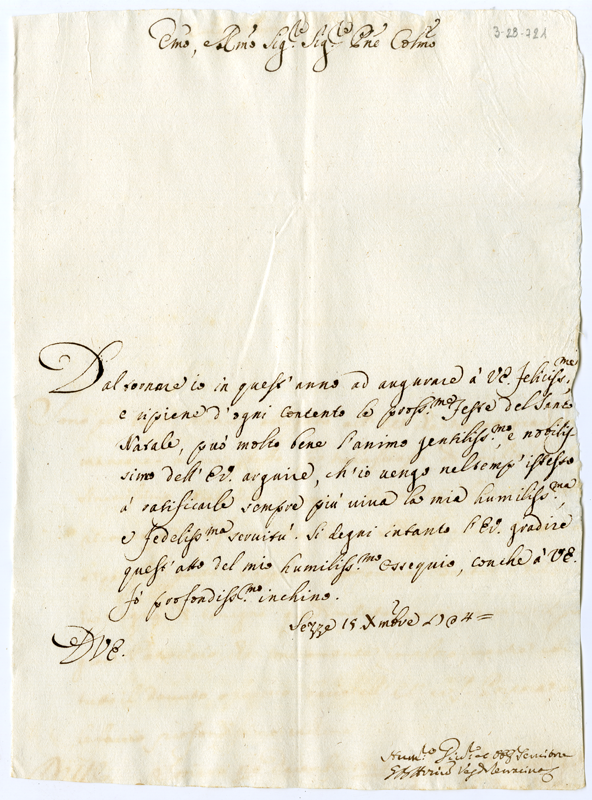 3-28-721
Emo, e Rmo Sig.re Sig.re Pne Colmo
Dal tornare io in quest'anno ad augurare à VE. feliciss.me
e ripiene d'ogni contento le pross.me Feste del Santo
Natale, può molto bene l'animo gentiliss.mo, e nobilis-
simo dell'EV. arguire, ch'io vengo nel temp'istesso
à ratificarle sempre più viva la mia humiliss.ma,
e fedeliss.ma servitù. Si degni intanto l'EV. gradire
quest'atto del mio humiliss.mo ossequio, con che à VE.
fò profondiss.mo inchino.
Sezze 15 Xmbre
DVE.
Hum.mo Servitore